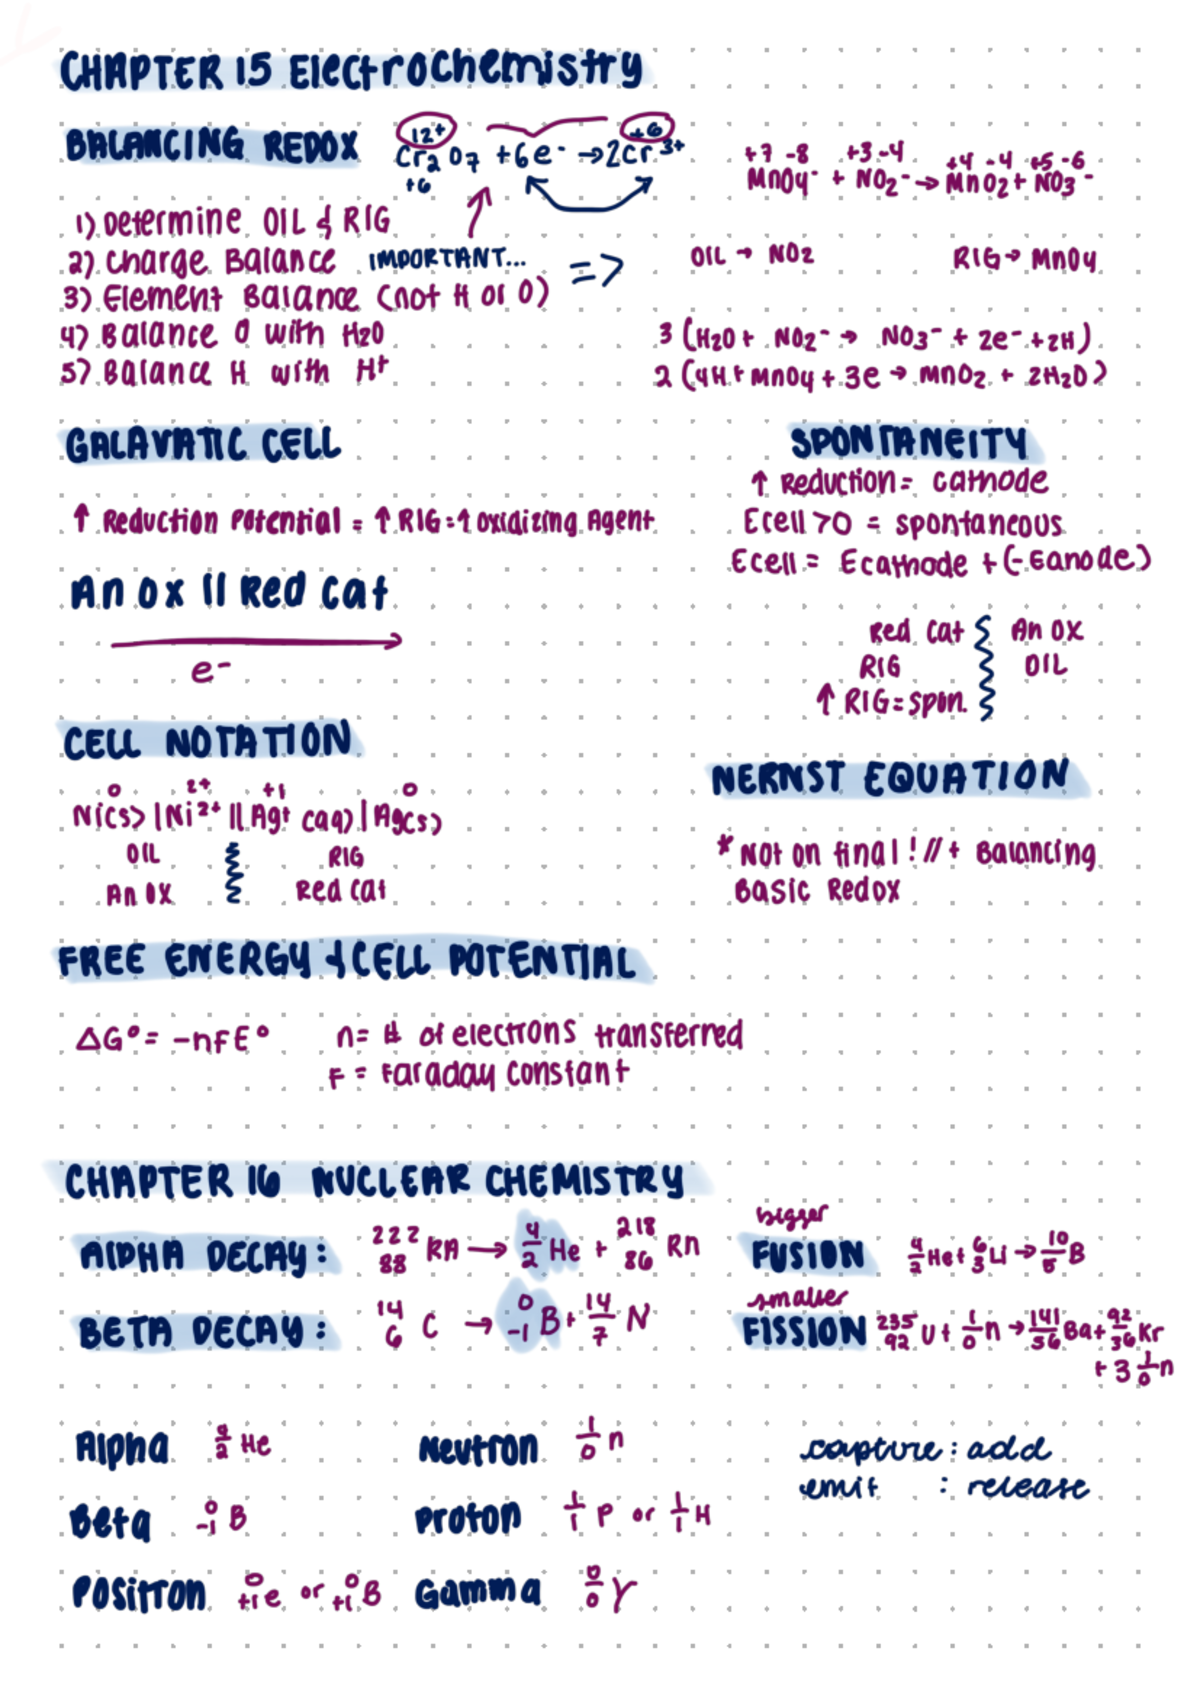 CHAPTER 15 Electrochemistry
BALANCING REDOX
12+ +6
Cr₂O₇ + 6e⁻ → 2Cr³⁺
+6
+7 -8 +3 -4 +4 -4 +5 -6
MnO₄⁻ + NO₂⁻ → MnO₂ + NO₃⁻
1) Determine OIL & RIG
2) Charge Balance IMPORTANT... =>
3) Element Balance (not H or O)
4) Balance O with H₂O
5) Balance H with H⁺
OIL → NO₂ RIG → MnO₄
3 (H₂O + NO₂⁻ → NO₃⁻ + 2e⁻ + 2H)
2 (4H + MnO₄ + 3e → MnO₂ + 2H₂O)
GALAVATIC CELL
↑ Reduction Potential = ↑ RIG = ↑ oxidizing Agent
An ox || Red cat
e⁻
SPONTANEITY
↑ Reduction = cathode
Ecell > 0 = spontaneous
Ecell = Ecathode + (-Eanode)
Red Cat An OX
RIG OIL
↑ RIG = spon.
CELL NOTATION
0 2+ +1 0
Ni(s) | Ni²⁺ || Ag⁺ (aq) | Ag(s)
OIL RIG
An OX Red Cat
NERNST EQUATION
* Not on final! // + Balancing
Basic Redox
FREE ENERGY & CELL POTENTIAL
ΔG° = -nFE° n = # of electrons transferred
F = Faraday constant
CHAPTER 16 NUCLEAR CHEMISTRY
AlPHA DECAY: ²²²₈₈ RA → ⁴₂ He + ²¹⁸₈₆ Rn
BETA DECAY: ¹⁴₆ C → ⁰₋₁ B + ¹⁴₇ N
bigger
FUSION ⁴₂ He + ⁶₃ Li → ¹⁰₅ B
smaller
FISSION ²³⁵₉₂ U + ¹₀ n → ¹⁴¹₅₆ Ba + ⁹²₃₆ Kr
+ 3 ¹₀ n
Alpha ⁴₂ He Neutron ¹₀ n
Beta ⁰₋₁ B Proton ¹₁ P or ¹₁ H
Positron ⁰₊₁ e or ⁰₊₁ B Gamma ⁰₀ γ
capture : add
emit : release